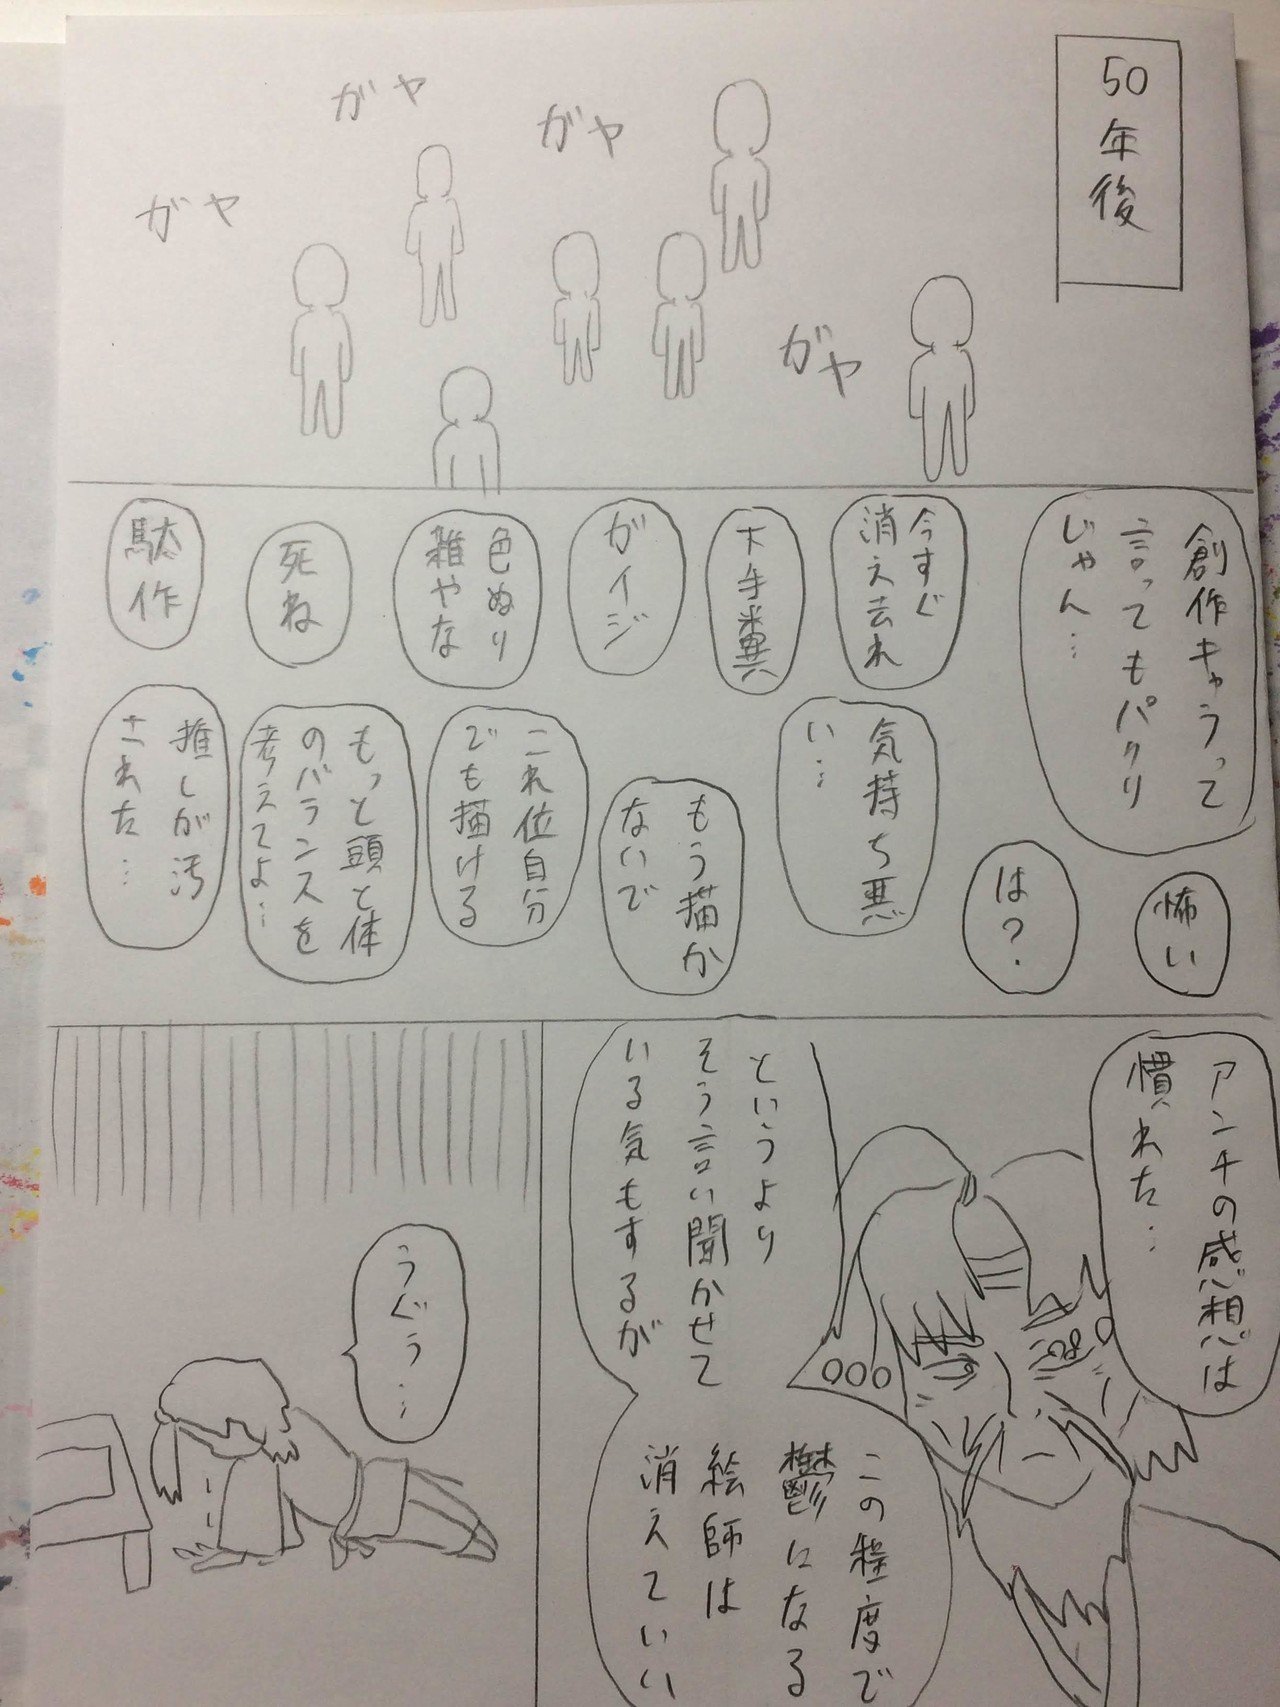 50年後
ガヤ
ガヤ
ガヤ
ガヤ
創作キャラって
言ってもパクリ
じゃん…
怖い
は?
今すぐ
消え去れ
気持ち悪
い…
下手糞
もう描か
ないで
ガイジ
これ位自分
でも描ける
色ぬり
雑やな
もっと頭と体
のバランスを
考えてよ…
死ね
駄作
推しが汚
された…
アンチの感想は
慣れた…
というより
そう言い聞かせて
いる気もするが
この程度で
鬱になる
絵師は
消えていい
うぐぅ…